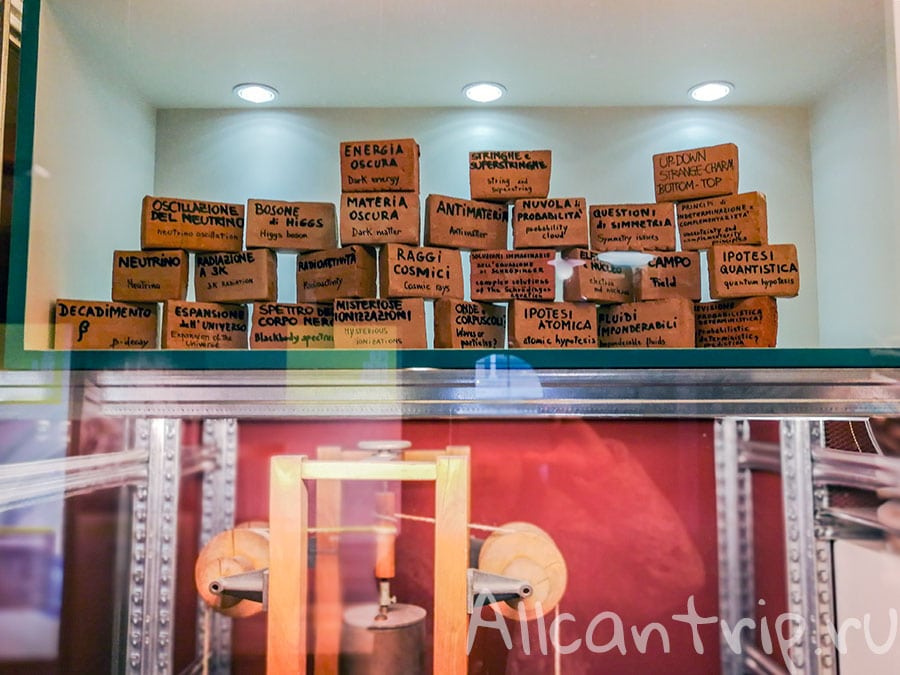 ENERGIA
OSCURA
Dark energy
STRINGHE e
SUPERSTRINGHE
String and
Superstring
UP-DOWN
STRANGE-CHARM
BOTTOM-TOP
OSCILLAZIONE
DEL NEUTRINO
neutrino oscillation
BOSONE
di HIGGS
Higgs boson
MATERIA
OSCURA
Dark matter
ANTIMATERIA
Antimatter
NUVOLA di
PROBABILITÀ
probability
cloud
QUESTIONI
di SIMMETRIA
Symmetry issues
PRINCIPI di
INDETERMINAZIONE e
COMPLEMENTARITÀ
uncertainty and
complementarity
principles
NEUTRINO
Neutrino
RADIAZIONE
A 3K
3K RADIATION
RADIOATTIVITÀ
Radioactivity
RAGGI
COSMICI
Cosmic rays
SOLUZIONI IMMAGINARIE
dell'EQUAZIONE di
SCHRÖDINGER
complex solutions
of the Schrödinger
equation
NUCLEO
electron
and nucleus
CAMPO
Field
IPOTESI
QUANTISTICA
quantum hypotesis
DECADIMENTO
β
β-decay
ESPANSIONE
dell'UNIVERSO
Expansion of the
Universe
SPETTRO del
CORPO NERO
Blackbody spectrum
MISTERIOSE
IONIZZAZIONI
MYSTERIOUS
IONIZATIONS
ONDE o
CORPUSCOLI
Waves or
particles?
IPOTESI
ATOMICA
atomic hypotesis
FLUIDI
IMPONDERABILI
Imponderable fluids
PREVISIONE
PROBABILISTICA
DETERMINISTICA
Probabilistic
deterministic
prediction
Allcantrip.ru